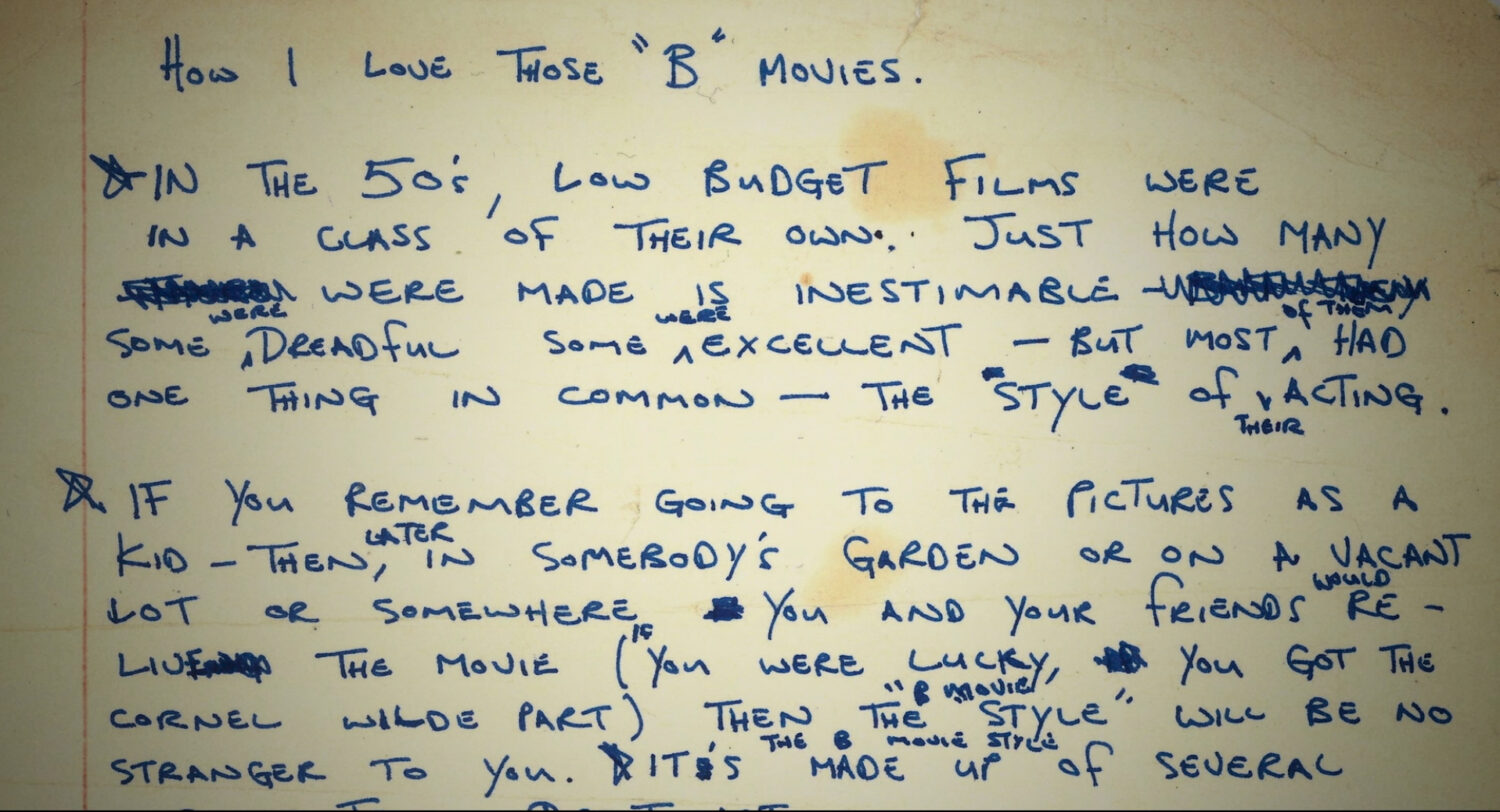 How I LOVE THOSE "B" MOVIES.
IN THE 50's, LOW BUDGET FILMS WERE
IN A CLASS OF THEIR OWN. JUST HOW MANY
WERE MADE IS INESTIMABLE
WERE WERE OF THEM
SOME DREADFUL SOME EXCELLENT — BUT MOST HAD
ONE THING IN COMMON — THE "STYLE" OF ACTING.
THEIR
IF YOU REMEMBER GOING TO THE PICTURES AS A
LATER
KID – THEN, IN SOMEBODY'S GARDEN OR ON A VACANT
WOULD
LOT OR SOMEWHERE YOU AND YOUR FRIENDS RE –
IF
LIVE THE MOVIE (YOU WERE LUCKY, YOU GOT THE
"B MOVIE
CORNEL WILDE PART) THEN THE "STYLE" WILL BE NO
THE B MOVIE STYLE
STRANGER TO YOU. IT'S MADE UP OF SEVERAL